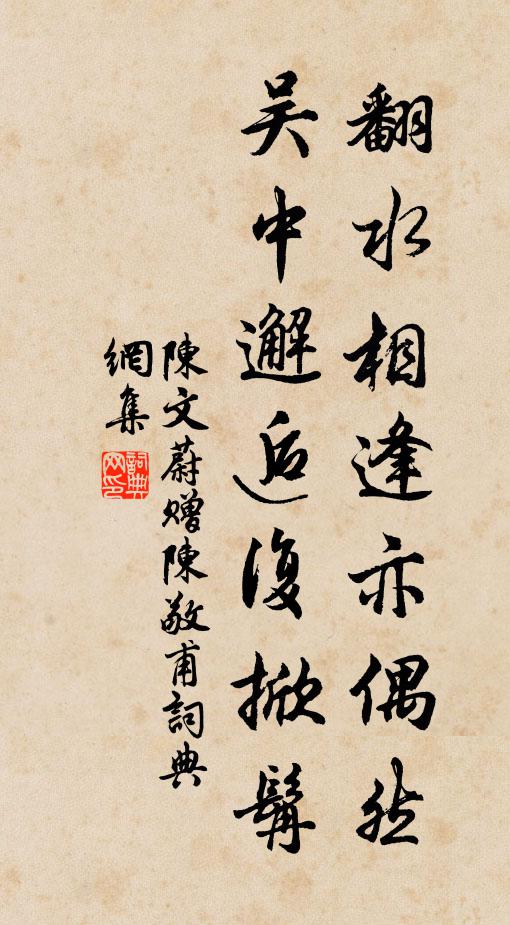 翻水相逢亦偶然
吴中邂逅復掀髯
陳文蔚贈陳敬甫詞典
網集
詞典網印